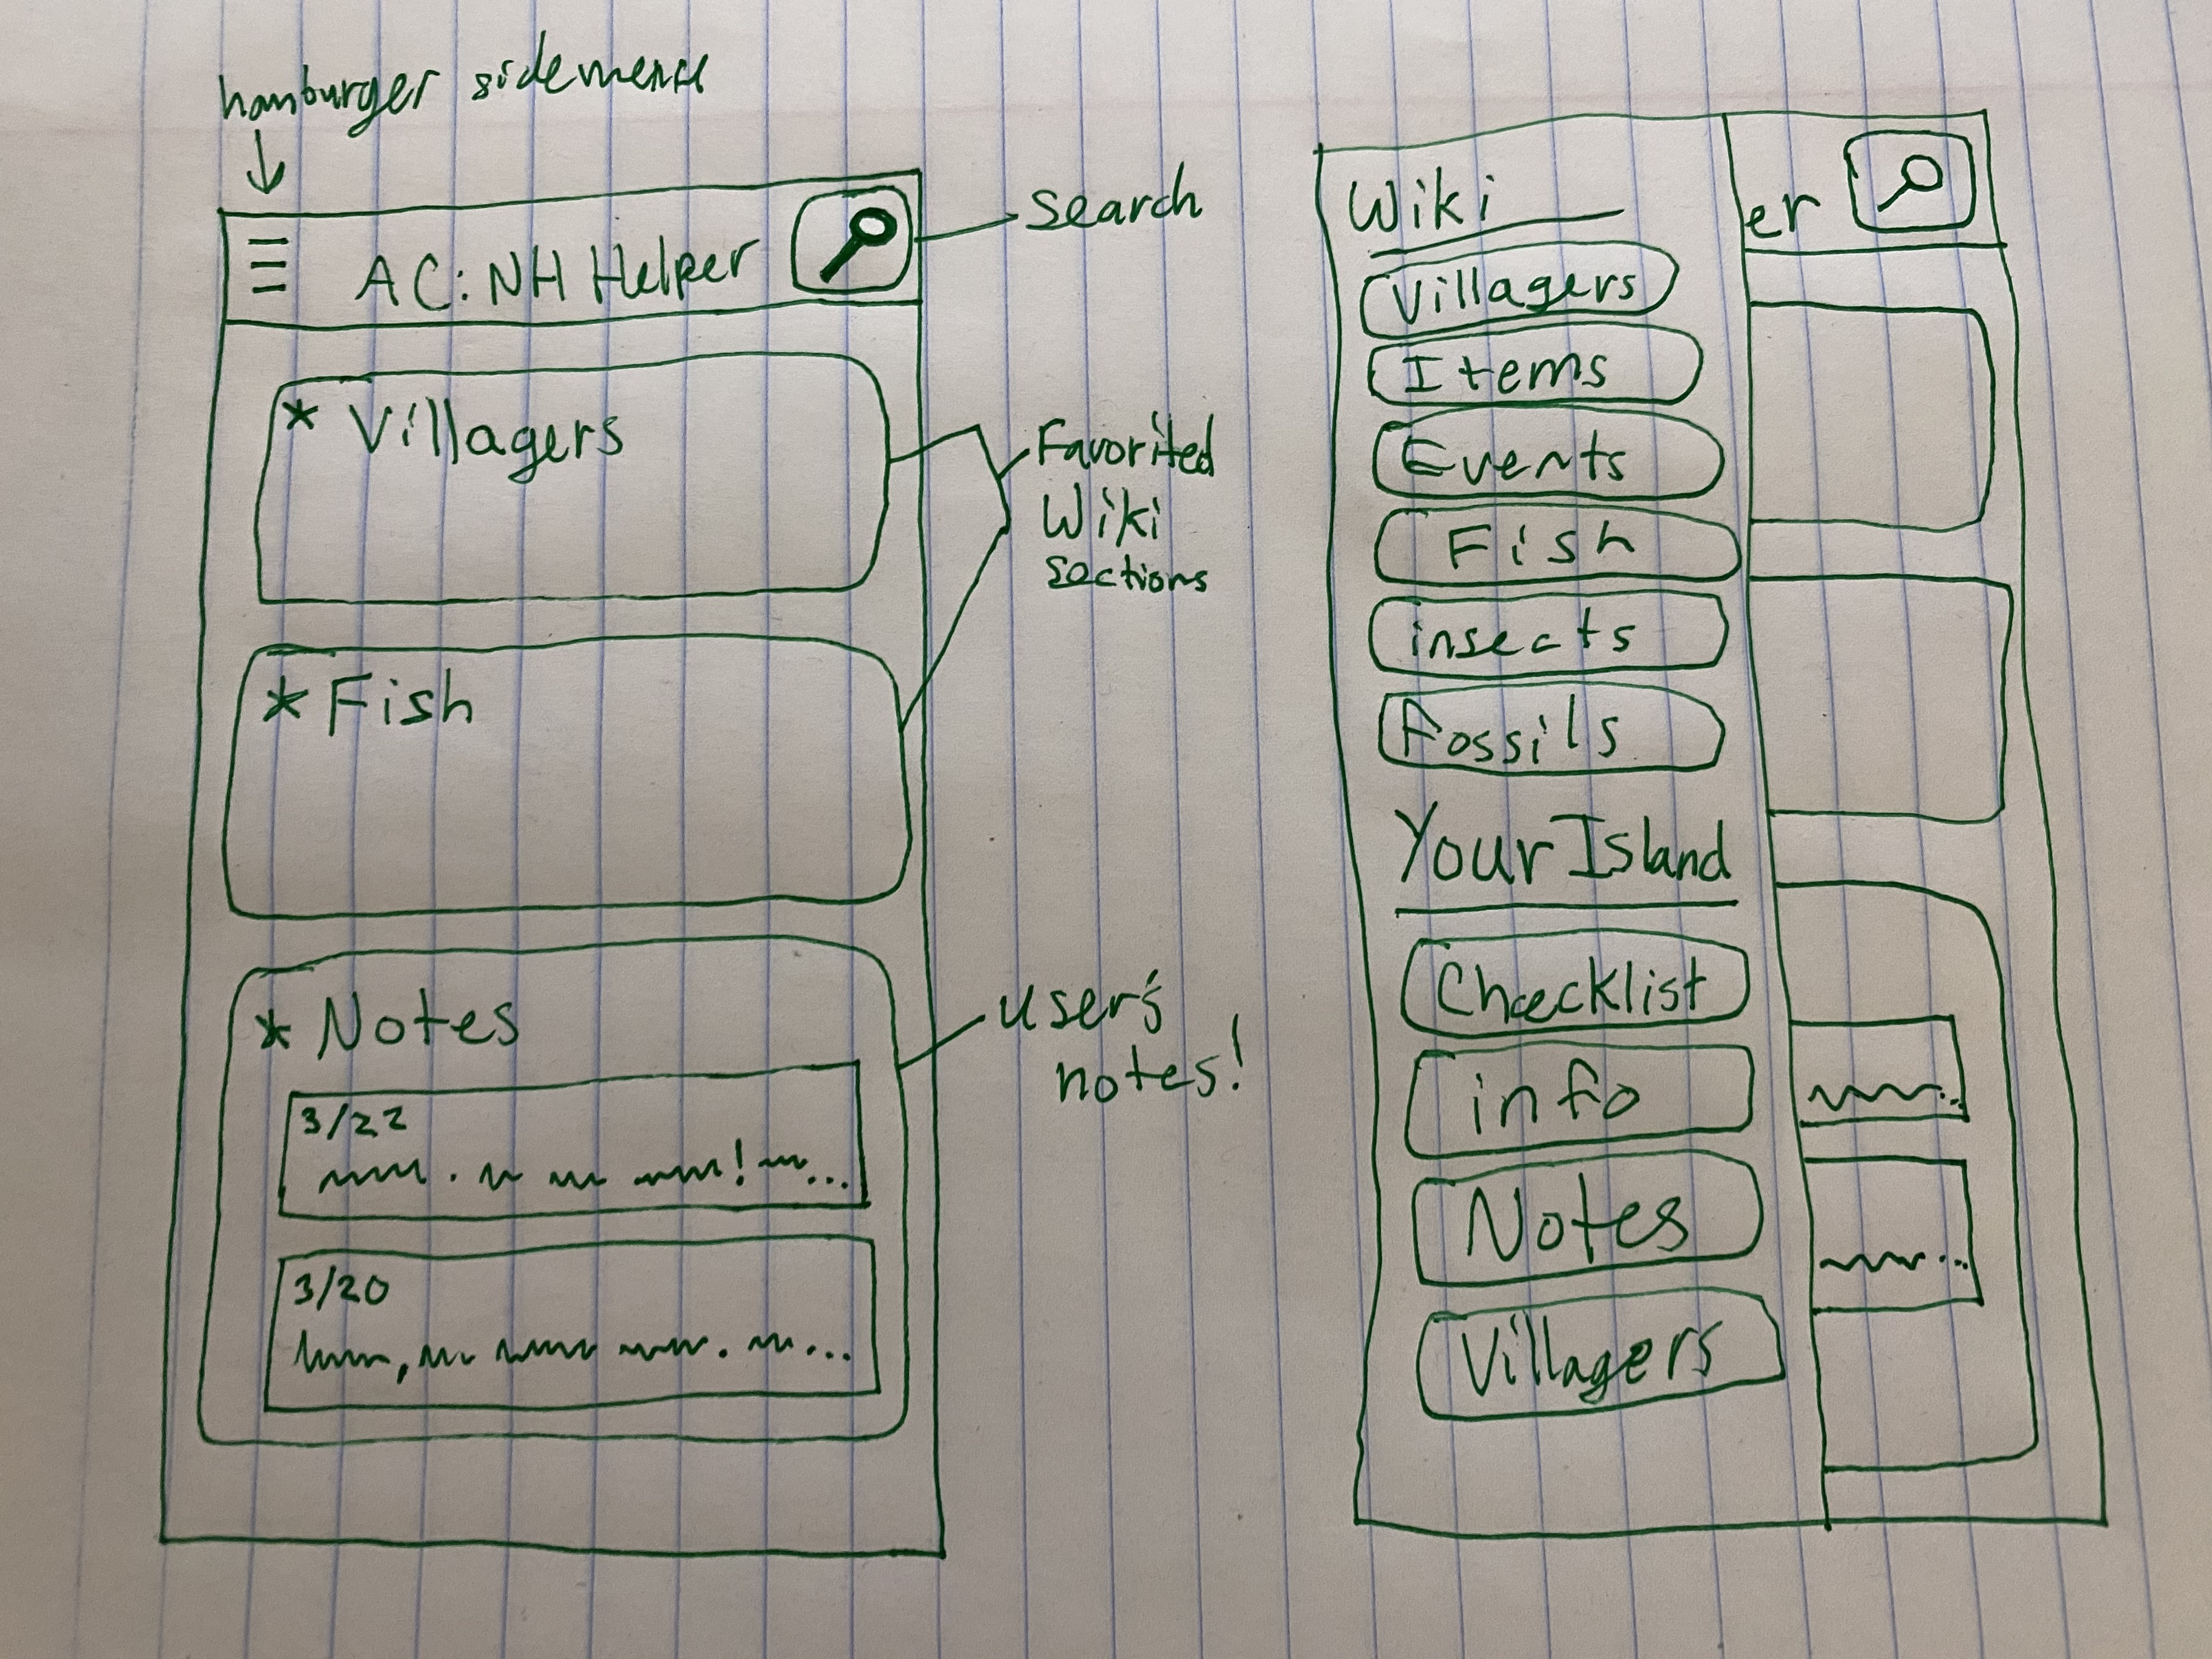 hamburger sidemenu
AC: NH Helper
Search
* Villagers
Favorited
Wiki
Sections
* Fish
* Notes
user's
notes!
3/22
3/20
Wiki
er
Villagers
Items
Events
Fish
insects
Fossils
Your Island
Checklist
info
Notes
Villagers